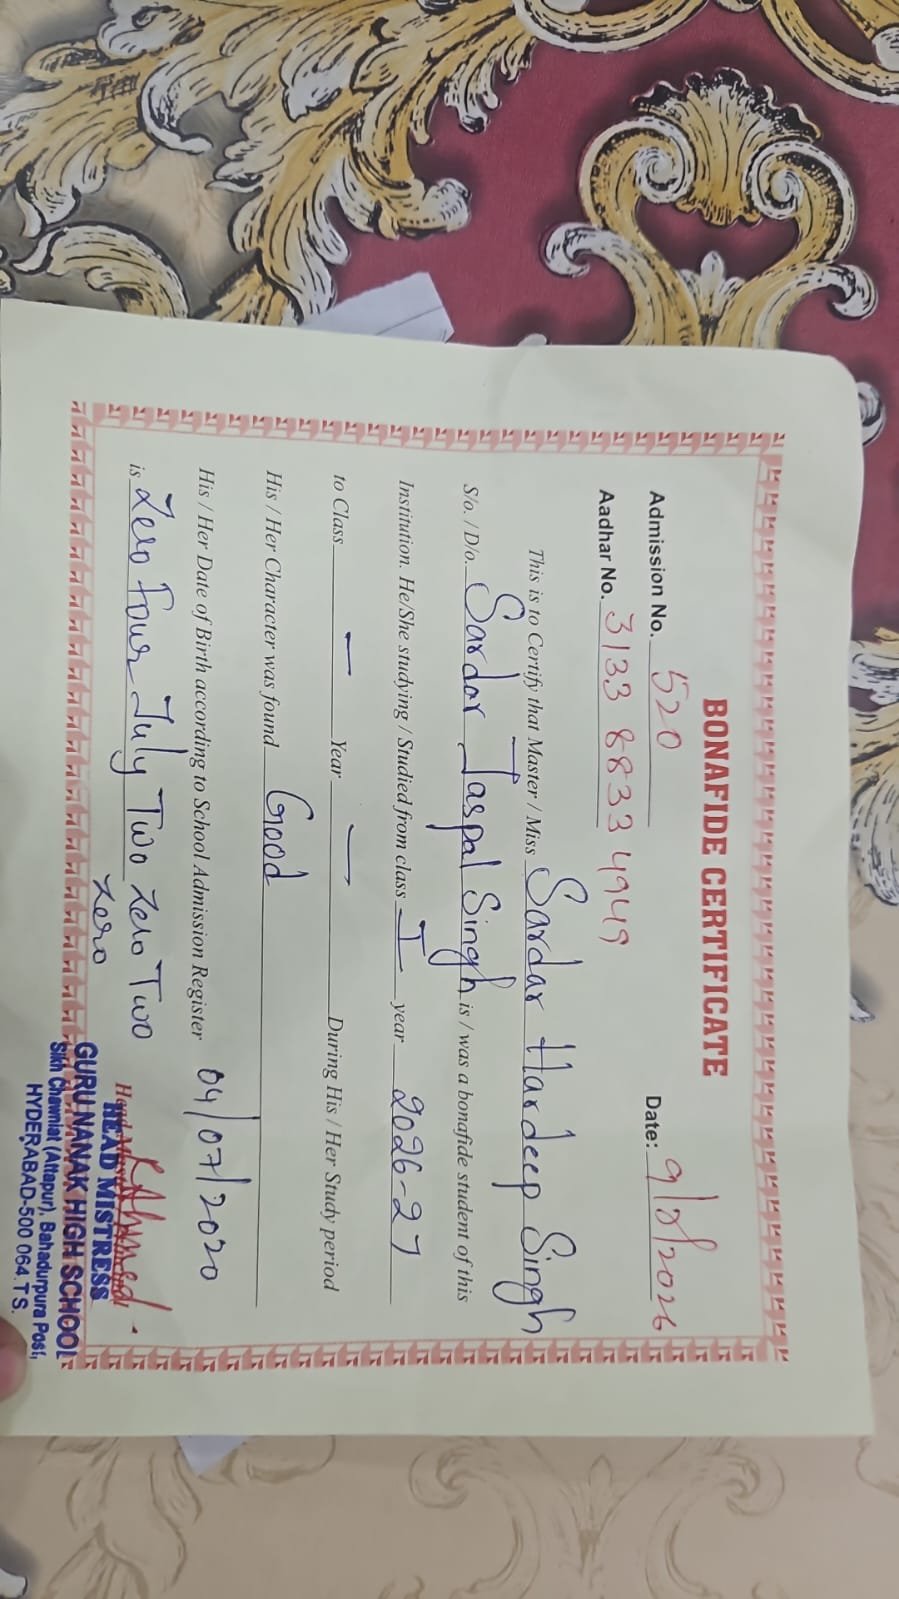 BONAFIDE CERTIFICATE
Admission No. 520 Date: 9/8/2026
Aadhar No. 3133 8833 4949
This is to Certify that Master / Miss Sardar Hardeep Singh
S/o. / D/o. Sardar Jaspal Singh is / was a bonafide student of this
Institution. He/She studying / Studied from class I year 2026-27
to Class — Year — During His / Her Study period
His / Her Character was found Good
His / Her Date of Birth according to School Admission Register 04/07/2020
is Zero Four July Two Zero Two
Zero
HEAD MISTRESS
GURU NANAK HIGH SCHOOL
Sikh Chawniat (Attapur), Bahadurpura Post,
HYDERABAD-500 064.T.S.